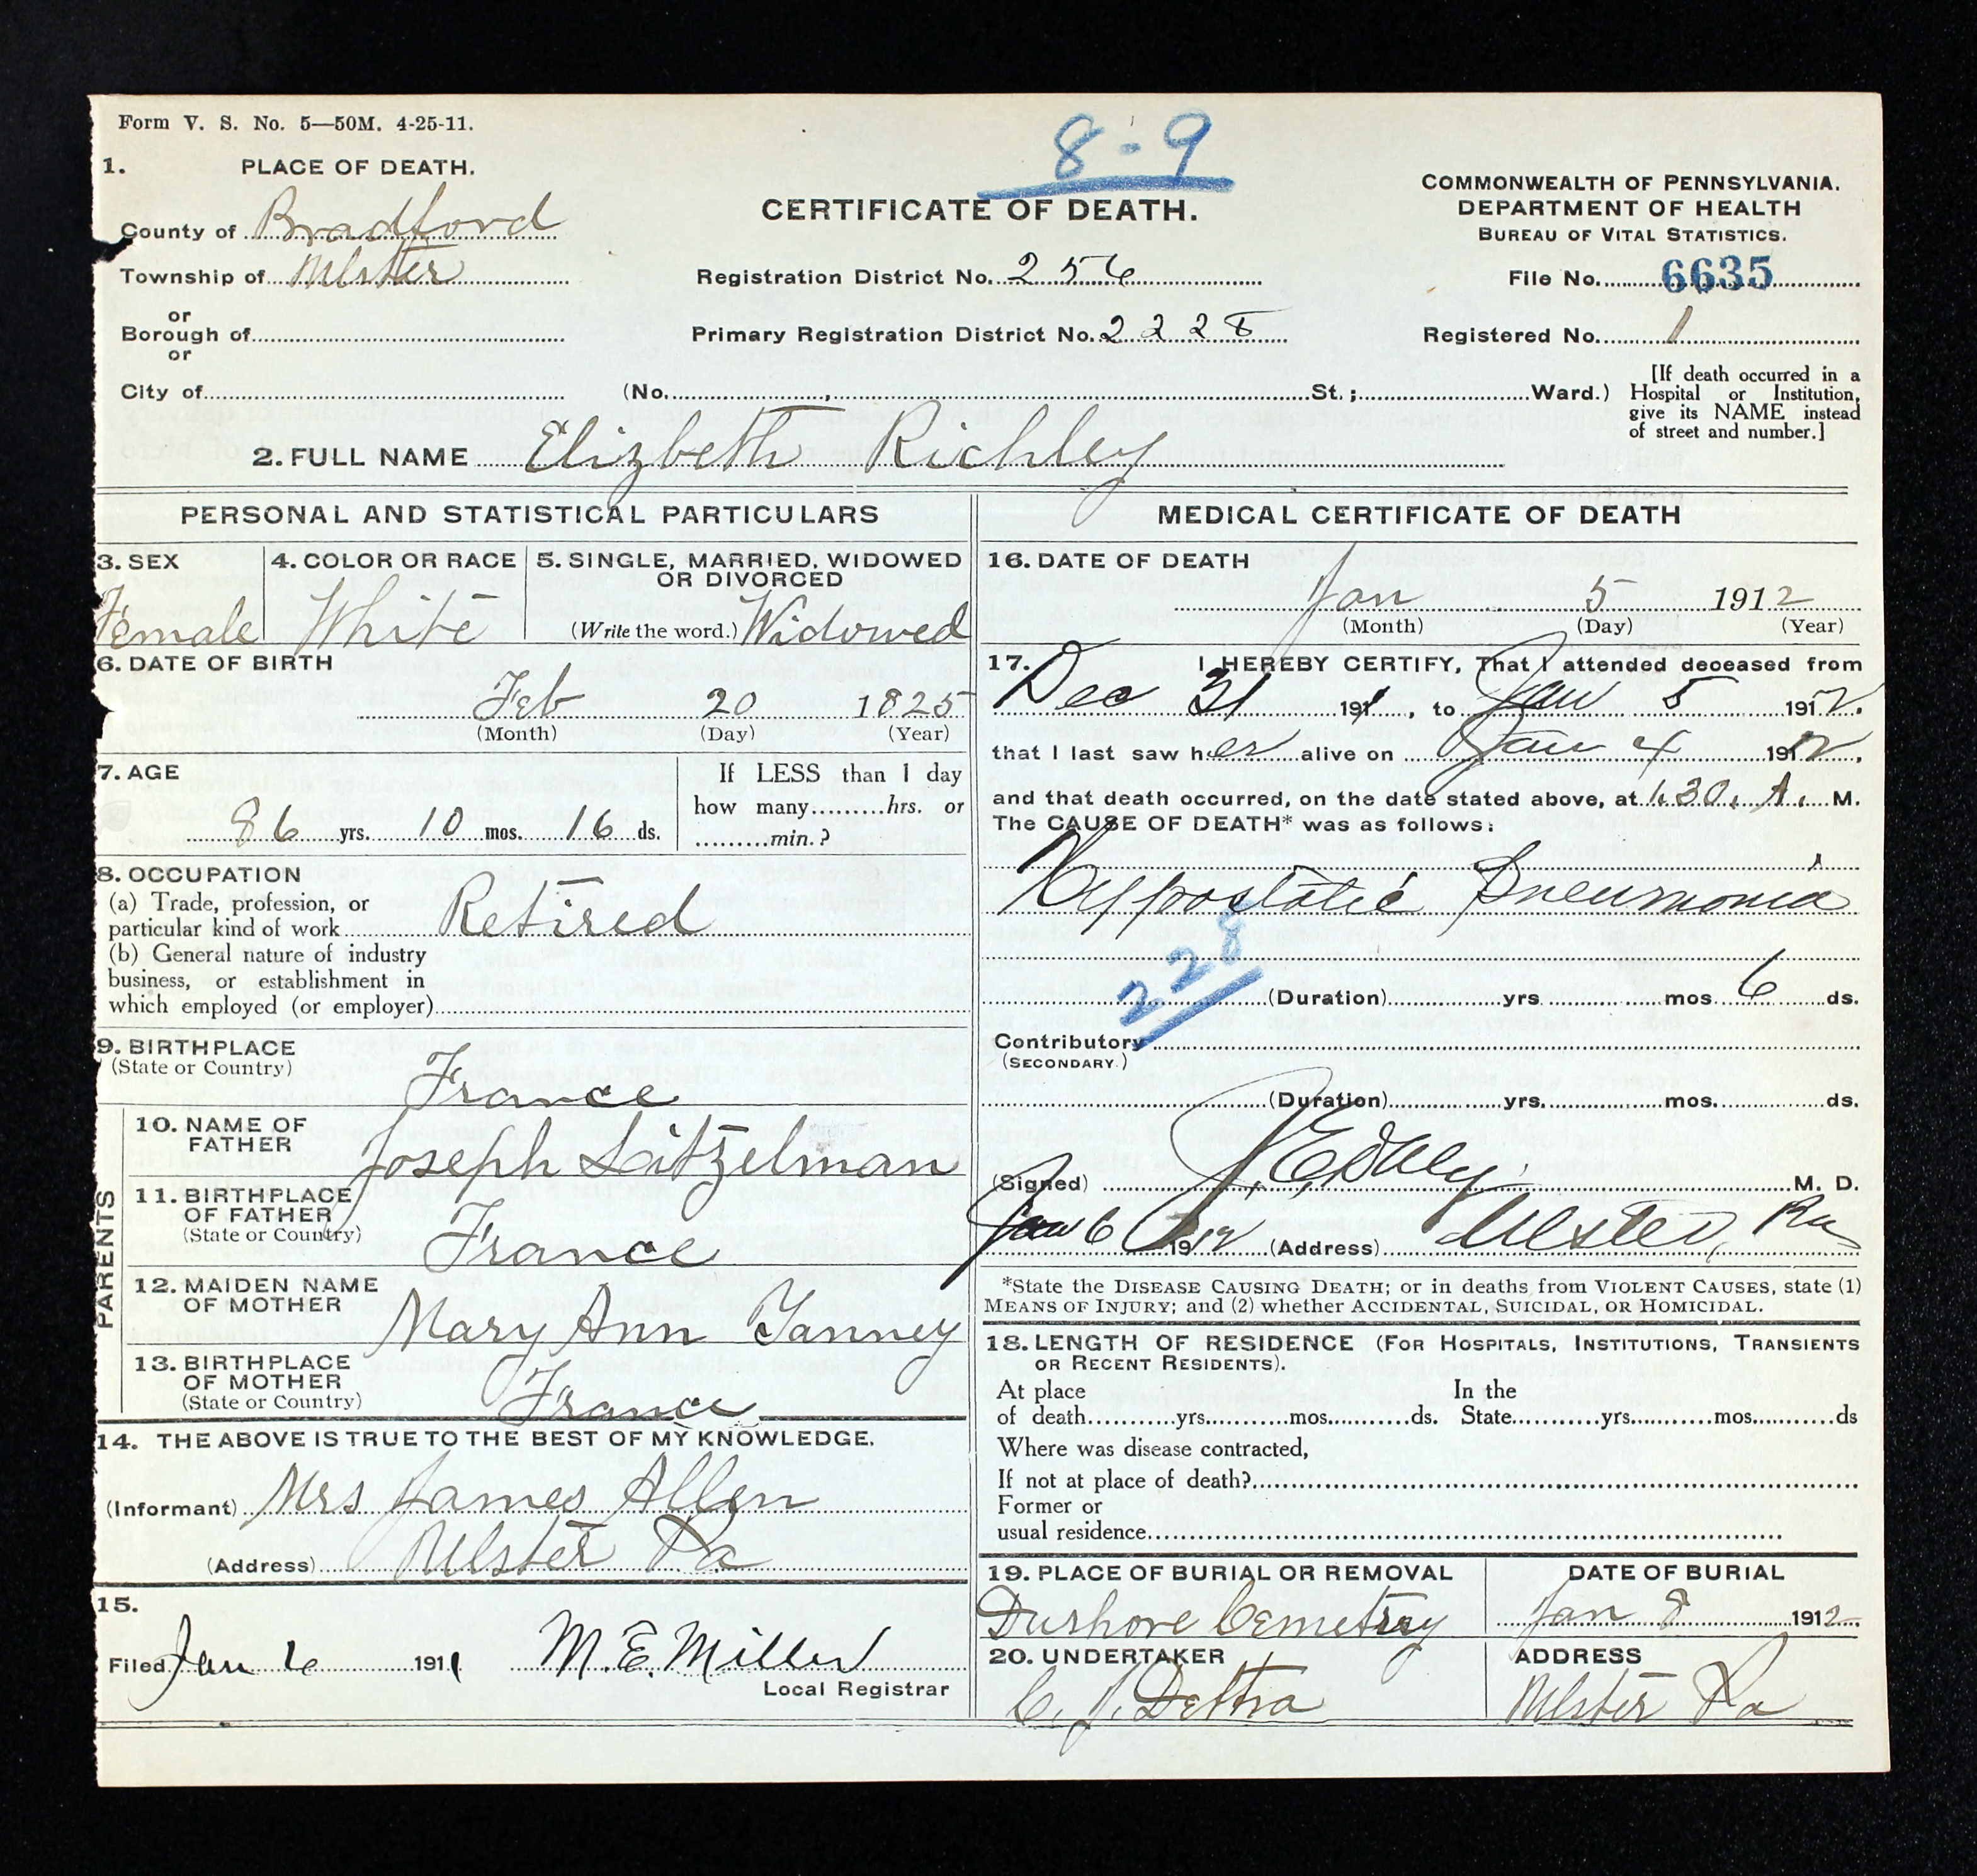 Form V. S. No. 5—50M. 4-25-11.
8-9
1. PLACE OF DEATH.
County of Bradford
Township of Ulster
or
Borough of
or
City of
CERTIFICATE OF DEATH.
Registration District No. 256
Primary Registration District No. 2228
(No. , St.; Ward.)
COMMONWEALTH OF PENNSYLVANIA.
DEPARTMENT OF HEALTH
BUREAU OF VITAL STATISTICS.
File No. 6635
Registered No. 1
[If death occurred in a
Hospital or Institution,
give its NAME instead
of street and number.]
2. FULL NAME Elizbeth Richley
PERSONAL AND STATISTICAL PARTICULARS
3. SEX
Female
4. COLOR OR RACE
White
5. SINGLE, MARRIED, WIDOWED
OR DIVORCED
(Write the word.) Widowed
6. DATE OF BIRTH
Feb 20 1825
(Month) (Day) (Year)
7. AGE
86 yrs. 10 mos. 16 ds.
If LESS than 1 day
how many hrs. or
min.?
8. OCCUPATION
(a) Trade, profession, or
particular kind of work Retired
(b) General nature of industry
business, or establishment in
which employed (or employer)
9. BIRTHPLACE
(State or Country)
France
PARENTS
10. NAME OF
FATHER
Joseph Litzelman
11. BIRTHPLACE
OF FATHER
(State or Country)
France
12. MAIDEN NAME
OF MOTHER
Mary Ann Yanney
13. BIRTHPLACE
OF MOTHER
(State or Country)
France
14. THE ABOVE IS TRUE TO THE BEST OF MY KNOWLEDGE.
(Informant) Mrs James Allen
(Address) Ulster Pa
15.
Filed Jan 6 1911 M. E. Miller
Local Registrar
MEDICAL CERTIFICATE OF DEATH
16. DATE OF DEATH
Jan 5 1912
(Month) (Day) (Year)
17. I HEREBY CERTIFY, That I attended deceased from
Dec 31 1911, to Jan 5 1912,
that I last saw her alive on Jan 4 1912,
and that death occurred, on the date stated above, at 1.30. A. M.
The CAUSE OF DEATH* was as follows:
Hypostatic Pneumonia
228
(Duration) yrs mos 6 ds.
Contributory
(SECONDARY.)
(Duration) yrs. mos. ds.
(Signed) M. D.
Jan 6 1912 (Address) Ulster, Pa
*State the DISEASE CAUSING DEATH; or in deaths from VIOLENT CAUSES, state (1)
MEANS OF INJURY; and (2) whether ACCIDENTAL, SUICIDAL, OR HOMICIDAL.
18. LENGTH OF RESIDENCE (FOR HOSPITALS, INSTITUTIONS, TRANSIENTS
OR RECENT RESIDENTS).
At place In the
of death yrs. mos. ds. State yrs. mos. ds
Where was disease contracted,
If not at place of death?
Former or
usual residence
19. PLACE OF BURIAL OR REMOVAL
Dushore Cemetray
DATE OF BURIAL
Jan 8 1912
20. UNDERTAKER
C. J. Dettra
ADDRESS
Ulster Pa